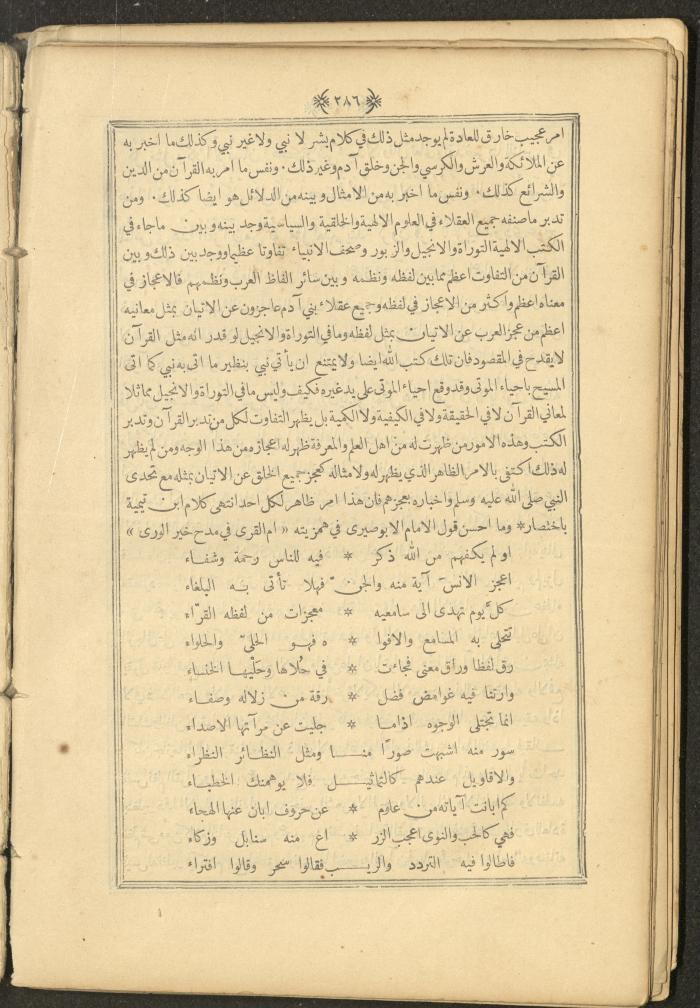 ٢٨٦
امر عجيب خارق للعادة لم يوجد مثل ذلك في كلام بشر لا نبي ولا غير نبي وكذلك ما اخبر به
عن الملائكة والعرش والكرسي والجن وخلق آدم وغير ذلك. ونفس ما امر به القرآن من الدين
والشرائع كذلك. ونفس ما اخبر به من الامثال وبينه من الدلائل هو ايضا كذلك. ومن
تدبر ما صنفه جميع العقلاء في العلوم الالهية والخلقية والسياسية وجد بينه وبين ما جاء في
الكتب الالهية التوراة والانجيل والزبور وصحف الانبياء تفاوتا عظيما ووجد بين ذلك وبين
القرآن من التفاوت اعظم مما بين لفظه ونظمه وبين سائر الفاظ العرب ونظمهم فالاعجاز في
معناه اعظم واكثر من الاعجاز في لفظه وجميع عقلاء بني آدم عاجزون عن الاتيان بمثل معانيه
اعظم من عجز العرب عن الاتيان بمثل لفظه وما في التوراة والانجيل لو قدر انه مثل القرآن
لا يقدح في المقصود فان تلك كتب الله ايضا ولا يمتنع ان يأتي نبي بنظير ما اتى به نبي كما اتى
المسيح باحياء الموتى وقد وقع احياء الموتى على يد غيره فكيف وليس ما في التوراة والانجيل مماثلا
لمعاني القرآن لا في الحقيقة ولا في الكيفية ولا الكمية بل يظهر التفاوت لكل من تدبر القرآن وتدبر
الكتب وهذه الامور من ظهرت له من اهل العلم والمعرفة ظهر له اعجازه من هذا الوجه ومن لم يظهر
له ذلك اكتفى بالامر الظاهر الذي يظهر له ولامثاله كعجز جميع الخلق عن الاتيان بمثله مع تحدى
النبي صلى الله عليه وسلم واخباره بعجزهم فان هذا امر ظاهر لكل احد انتهى كلام ابن تيمية
باختصار * وما احسن قول الامام الابوصيرى في همزيته « ام القرى في مدح خير الورى »
او لم يكفهم من الله ذكر * فيه للناس رحمة وشفاء
اعجز الانس آية منه والجنّ فهلا تأتي به البلغاء
كل يوم تهدى الى سامعيه * معجزات من لفظه القرّاء
تتحلى به المسامع والافوا * ه فهو الحلىّ والحلواء
رق لفظا وراق معنى فجاءت * في حُلاها وحَلْيها الخنساء
وارتنا فيه غوامض فضل * رقة من زلاله وصفاء
انما تجتلى الوجوه اذا ما * جليت عن مرآتها الاصداء
سور منه اشبهت صورًا منا ومثل النظائر النظراء
والاقاويل عندهم كالتماثيل فلا يوهمنك الخطباء
كم ابانت آياته من علوم * عن حروف ابان عنها الهجاء
فهي كالحب والنوى اعجب الزر * اع منه سنابل وزكاء
فاطالوا فيه التردد والريب فقالوا سحر وقالوا افتراء